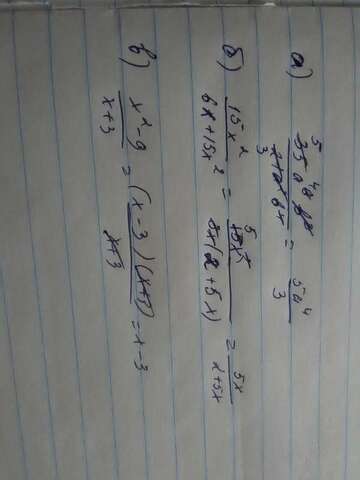 а) 35 a⁴ / 21 = 5a⁴ / 3
б) 15x² / 6x+15x² = 15x² / 3x(2+5x) = 5x / 2+5x
в) x²-9 / x+3 = (x-3)(x+3) / x+3 = x-3